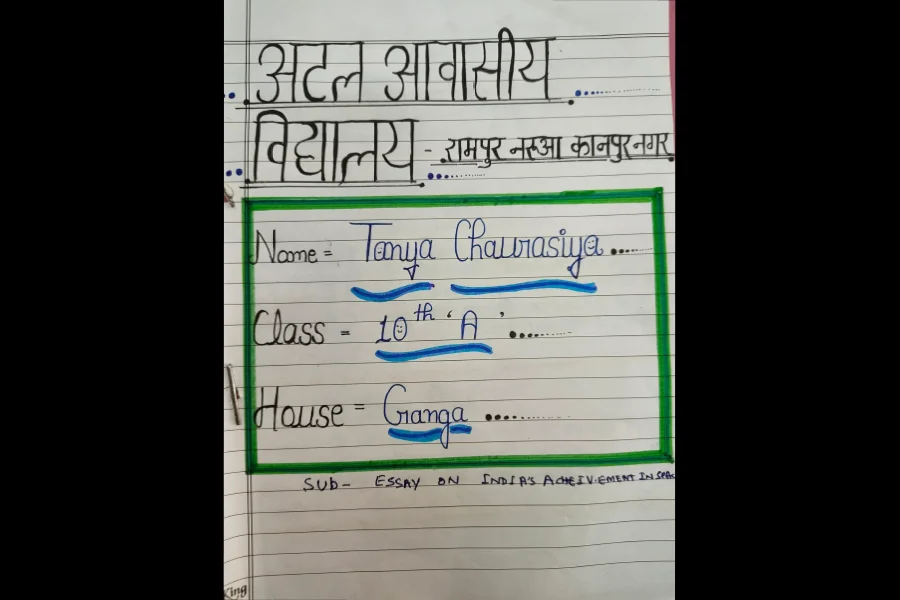 अटल आवासीय
विद्यालय - रामपुर नरुआ कानपुर नगर
Name = Tanya Chaurasiya
Class = 10th 'A'
House = Ganga
SUB- ESSAY ON INDIA'S ACHEIVEMENT IN SPAC